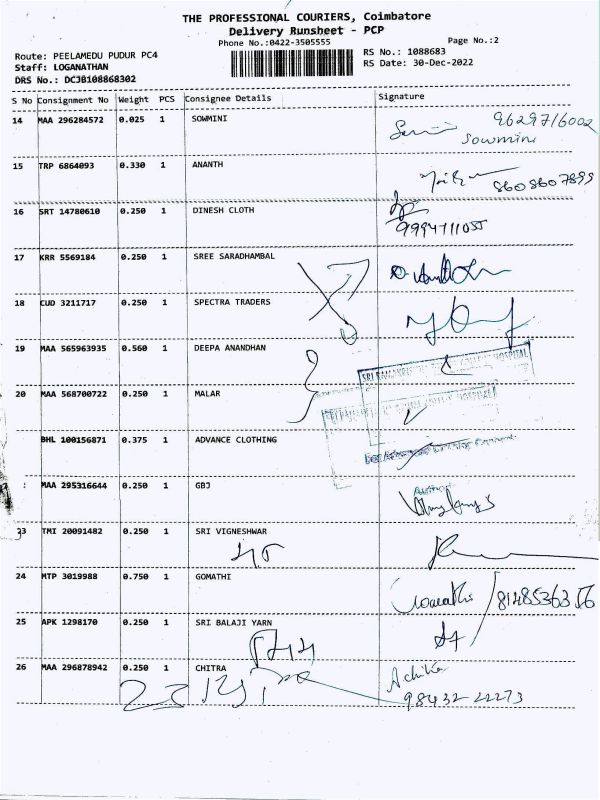 THE PROFESSIONAL COURIERS, Coimbatore
Delivery Runsheet - PCP
Phone No.:0422-3505555
Page No.:2
Route: PEELAMEDU PUDUR PC4
RS No.: 1088683
Staff: LOGANATHAN
RS Date: 30-Dec-2022
DRS No.: DCJB108868302
S No Consignment No Weight PCS Consignee Details Signature
14 MAA 296284572 0.025 1 SOWMINI 9629716002
Sowmini
15 TRP 6864093 0.330 1 ANANTH 8608607899
16 SRT 14780610 0.250 1 DINESH CLOTH
9994711055
17 KRR 5569184 0.250 1 SREE SARADHAMBAL
18 CUD 3211717 0.250 1 SPECTRA TRADERS
19 MAA 565963935 0.560 1 DEEPA ANANDHAN
HOSPITAL
20 MAA 568700722 0.250 1 MALAR
HOSPITAL
BHL 100156871 0.375 1 ADVANCE CLOTHING
: MAA 295316644 0.250 1 GBJ
23 TMI 20091482 0.250 1 SRI VIGNESHWAR
24 MTP 3019988 0.750 1 GOMATHI
Gomathi 8148536356
25 APK 1298170 0.250 1 SRI BALAJI YARN
26 MAA 296878942 0.250 1 CHITRA
98432-22273